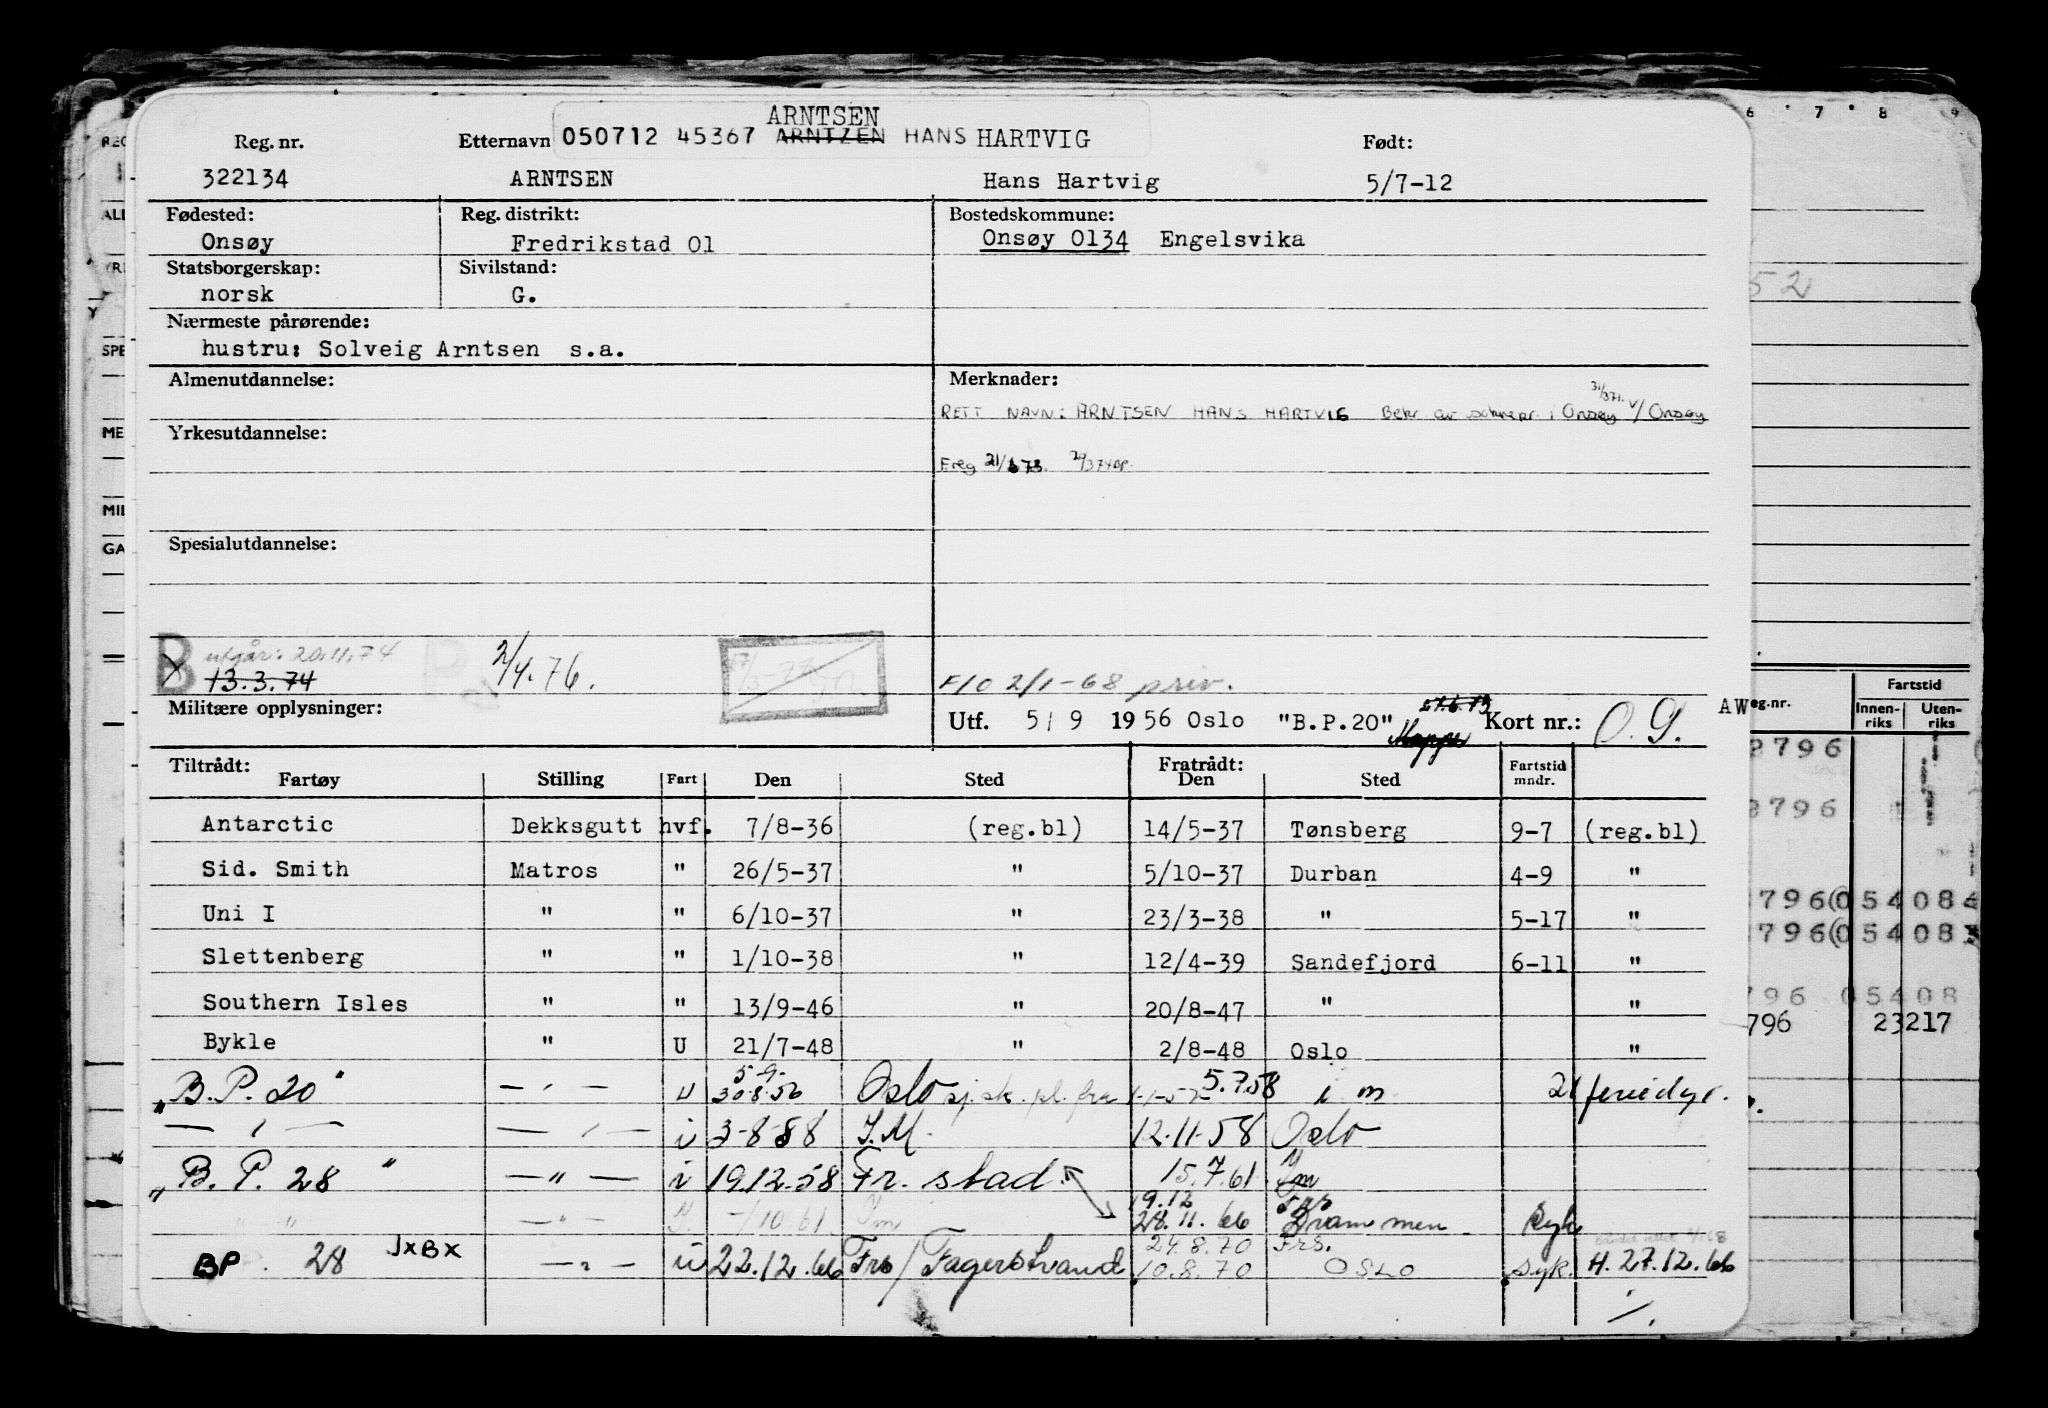 ARNTSEN
Reg. nr. Etternavn 050712 45367 ARNTZEN HANS HARTVIG Født:
322134 ARNTSEN Hans Hartvig 5/7-12
Fødested: Reg. distrikt: Bostedskommune:
Onsøy Fredrikstad 01 Onsøy 0134 Engelsvika
Statsborgerskap: Sivilstand:
norsk G.
Nærmeste pårørende:
hustru: Solveig Arntsen s.a.
Almenutdannelse: Merknader:
RETT NAVN: ARNTSEN HANS HARTVIG Bekr. av i Onsøy v/ Onsøy
Yrkesutdannelse:
Spesialutdannelse:
B utgår: 20.11.74 2/4.76.
13.3.74 F10 2/1-68 priv.
Militære opplysninger: Utf. 5/9 1956 Oslo "B.P.20" Kort nr.: O.S.
Tiltrådt: Fratrådt:
Fartøy Stilling Fart Den Sted Den Sted Fartstid mndr.
Antarctic Dekksgutt hvf. 7/8-36 (reg.bl) 14/5-37 Tønsberg 9-7 (reg.bl)
Sid. Smith Matros " 26/5-37 " 5/10-37 Durban 4-9 "
Uni I " " 6/10-37 " 23/3-38 " 5-17 "
Slettenberg " " 1/10-38 " 12/4-39 Sandefjord 6-11 "
Southern Isles " " 13/9-46 " 20/8-47 " "
Bykle " U 21/7-48 " 2/8-48 Oslo "
5-9-
"B.P. 20" — " — u 30-8-56 Oslo sj.sk. pl. fra 1-1-57 5.7.58 i m 21 feriedgr.
— " — — " — i 3-8-58 I.M. 12.11.58 Oslo
"B.P. 28" — " — i 19.12.58 Fr. stad. 15.7.61 Im
19.12 Frs
— " — -/10.61 Im 28.11.66 Drammen Syk
24.8.70 Frs.
BP. 28 JxBx — " — i 22.12.66 Frs/Fagerstrand 10.8.70 OSLO syk. H. 27.12.66
6 7 8 9
REG
ALL
SPE
ME
MIL
GA
52
AW eg.nr. Fartstid
Innen-riks Uten-riks
8796
8796
796 054084
796 05408
796 05408
796 23217